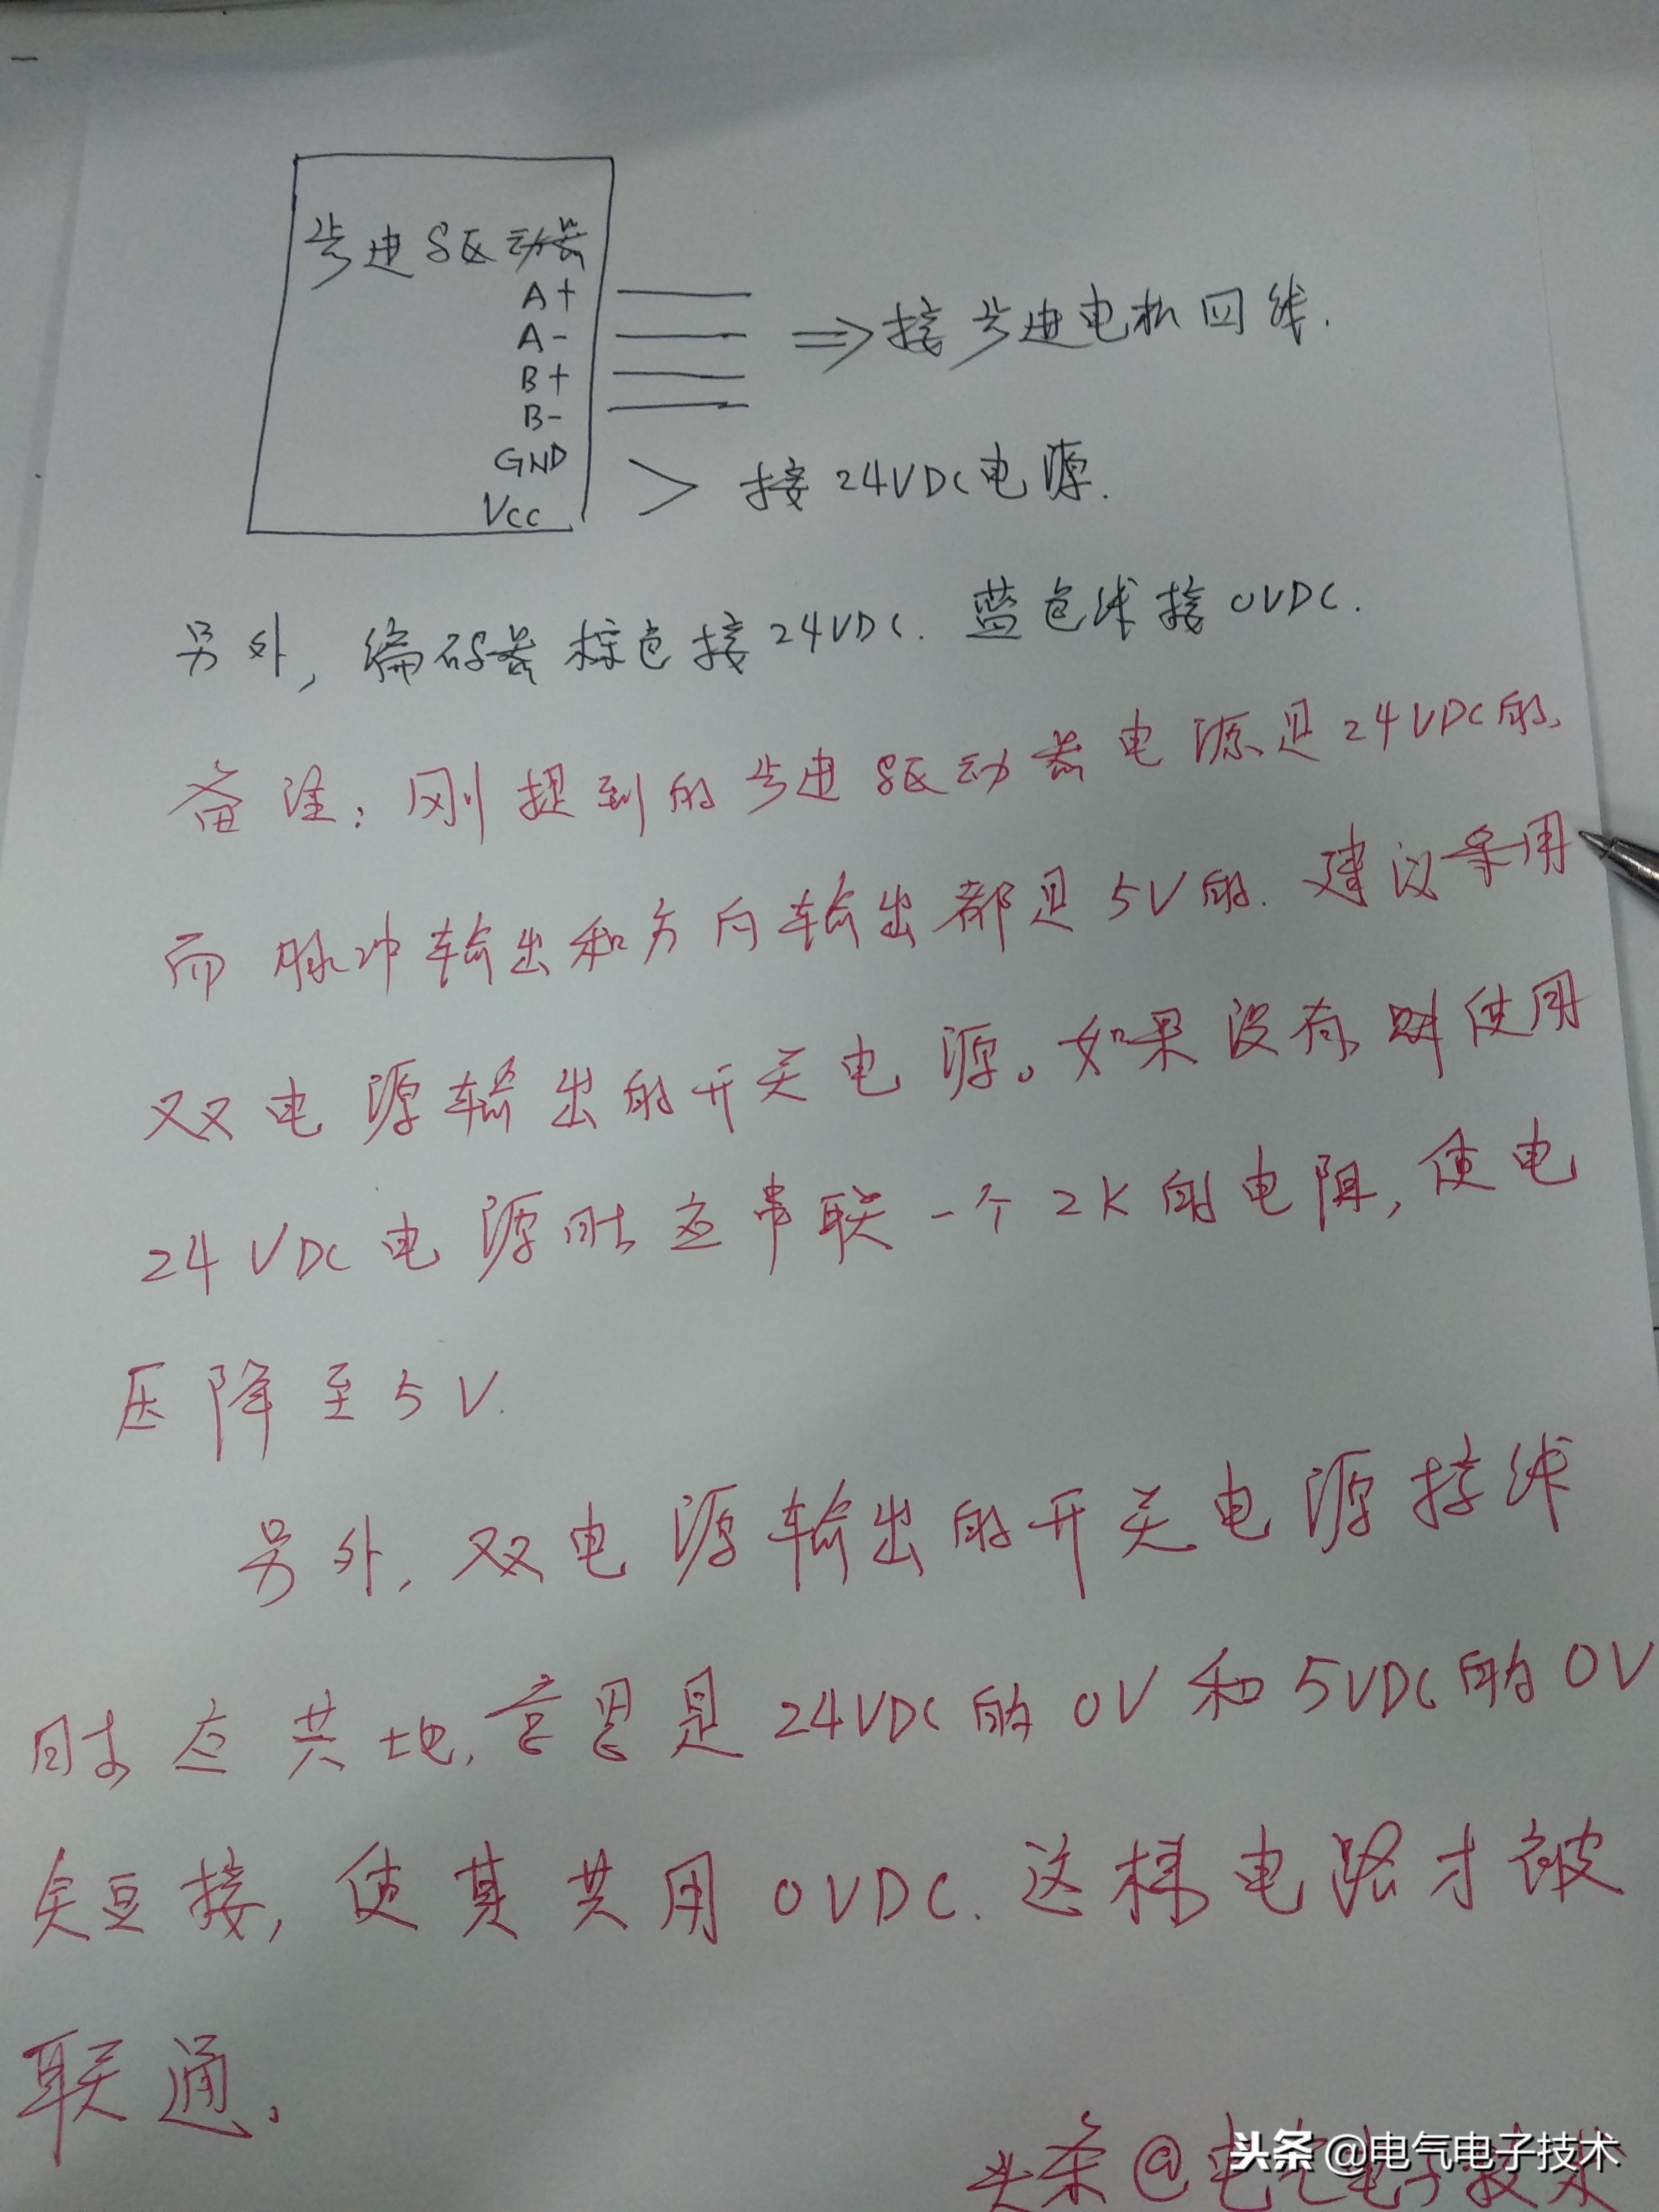 步进驱动器
A+
A-
B+
B-
⇒接步进电机四线.
GND
Vcc
> 接24VDC电源.
另外,编码器棕色接24VDC.蓝色线接0VDC.
备注:刚提到的步进驱动器电源是24VDC的,
而脉冲输出和方向输出都是5V的.建议采用
双电源输出的开关电源。如果没有,则使用
24VDC电源时应串联一个2K的电阻,使电
压降至5V.
另外,双电源输出的开关电源接线
时应共地,意思是24VDC的0V和5VDC的0V
短接,使其共用0VDC.这样电路才被
联通.
头条@电气电子技术
头条 @电气电子技术